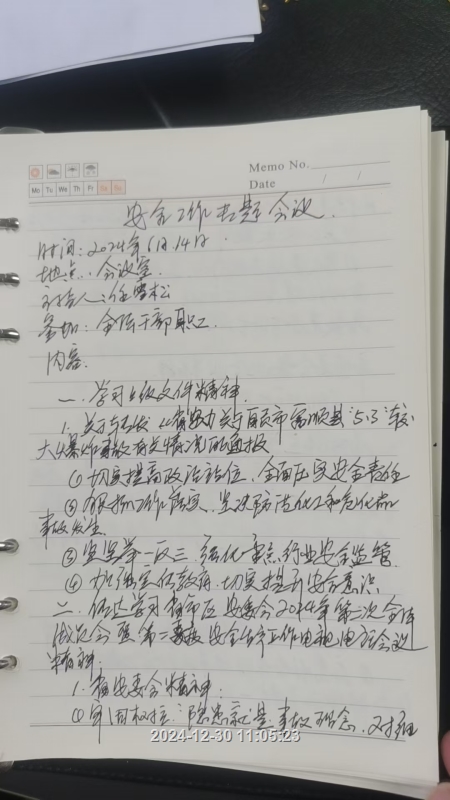 Memo No.
Mo Tu We Th Fr Sa Su
Date / /
安全工作专题会议.
时间:2024年6月14日.
地点:会议室
主持人:任雪松
参加:全体干部职工
内容:
一、学习上级文件精神.
1.关于转发《省安办关于自贡市富顺县"5.3"较
大爆炸事故有关情况的通报
①切实提高政治站位,全面压实安全责任
②狠抓工作落实,坚决防范化工和危化品
事故发生.
③坚持举一反三,强化重点行业安全监管
④加强宣传教育,切实提升安全意识
二、传达学习省市区安委会2024年第二次全体
成员会暨第二季度安全生产工作电视电话会议
精神.
1.省安委会精神.
①牢固树立"隐患就是事故"理念,对
2024-12-30 11:05:23